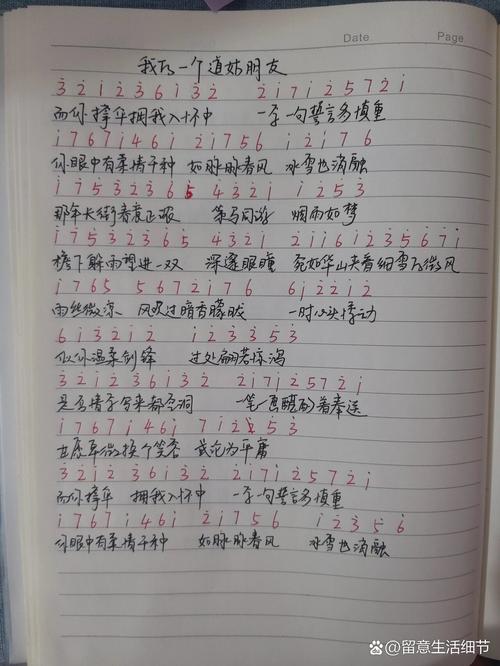 Date. Page.
我有一个道姑朋友
3 2 1 2 3 6 1 3 2 2 1 7 1 2 5 7 2 1
而你撑伞拥我入怀中 一字一句誓言多慎重
1 7 6 7 1 4 6 1 2 1 7 5 6 1 2 1 7 6
你眼中有柔情千种 如脉脉春风 冰雪也消融
1 7 5 3 2 3 6 5 4 3 2 1 1 2 5 3
那年长街春意正浓 策马同游 烟雨如梦
1 7 5 3 2 3 6 5 4 3 2 1 2 1 1 6 1 2 3 5 6 7 1
檐下躲雨望进一双 深邃眼瞳 宛如华山夹着细雪的微风
1 7 6 5 5 6 7 2 1 7 6 6 1 2 2 1 2
雨丝微凉 风吹过暗香朦胧 一时心头悸动
6 1 3 2 1 2 1 2 3 3 5 3
似你温柔剑锋 过处翩若惊鸿
3 2 1 2 3 6 1 3 2 2 1 7 1 2 5 7 2 1
是否情字写来都空洞 一笔一画斟酌着奉送
1 7 6 7 1 4 6 1 7 1 2 2 5 3
甘愿卑微换个笑容 或沦为平庸
3 2 1 2 3 6 1 3 2 2 1 7 1 2 5 7 2 1
而你撑伞 拥我入怀中 一字一句誓言多慎重
1 7 6 7 1 4 6 1 2 1 7 5 6 1 2 3 5 6
你眼中有柔情千种 如脉脉春风 冰雪也消融
留意生活细节